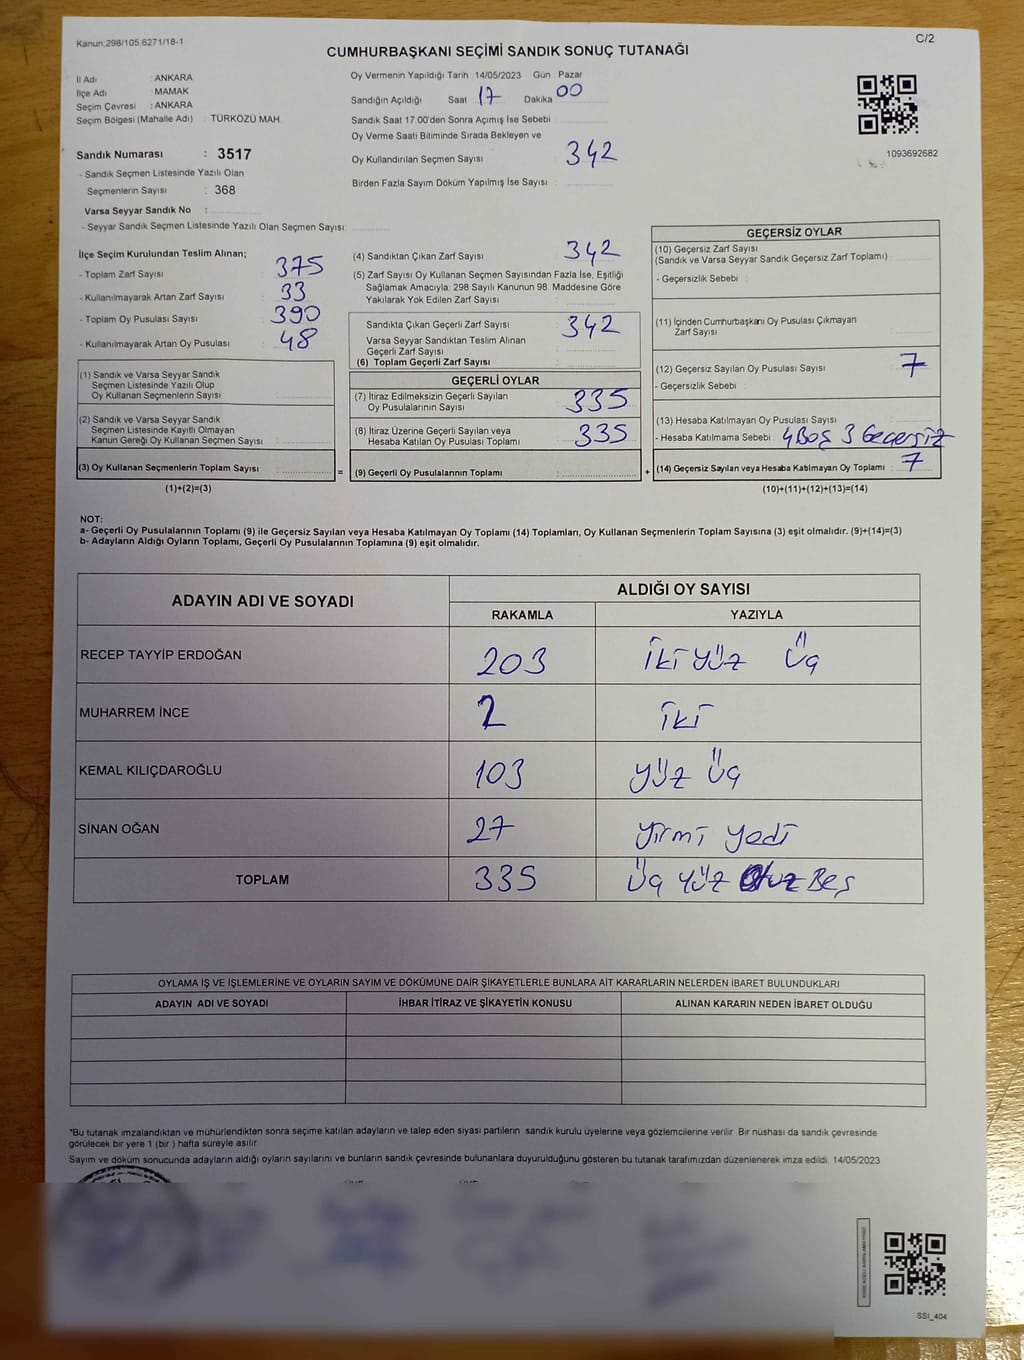 Kanun:298/105 6271/18-1
C/2
CUMHURBAŞKANI SEÇİMİ SANDIK SONUÇ TUTANAĞI
İl Adı : ANKARA
İlçe Adı : MAMAK
Seçim Çevresi : ANKARA
Seçim Bölgesi (Mahalle Adı) : TÜRKÖZÜ MAH.
Sandık Numarası : 3517
- Sandık Seçmen Listesinde Yazılı Olan
Seçmenlerin Sayısı : 368
Varsa Seyyar Sandık No :
- Seyyar Sandık Seçmen Listesinde Yazılı Olan Seçmen Sayısı:
Oy Vermenin Yapıldığı Tarih : 14/05/2023 Gün : Pazar
Sandığın Açıldığı Saat 17 Dakika 00
Sandık Saat 17:00'den Sonra Açımış İse Sebebi :
Oy Verme Saati Bitiminde Sırada Bekleyen ve
Oy Kullandırılan Seçmen Sayısı : 342
Birden Fazla Sayım Döküm Yapılmış İse Sayısı :
1093692682
İlçe Seçim Kurulundan Teslim Alınan;
- Toplam Zarf Sayısı : 375
- Kullanılmayarak Artan Zarf Sayısı : 33
- Toplam Oy Pusulası Sayısı : 390
- Kullanılmayarak Artan Oy Pusulası : 48
(1) Sandık ve Varsa Seyyar Sandık
Seçmen Listesinde Yazılı Olup
Oy Kullanan Seçmenlerin Sayısı :
(2) Sandık ve Varsa Seyyar Sandık
Seçmen Listesinde Kayıtlı Olmayan
Kanun Gereği Oy Kullanan Seçmen Sayısı :
(3) Oy Kullanan Seçmenlerin Toplam Sayısı :
(1)+(2)=(3)
(4) Sandıktan Çıkan Zarf Sayısı : 342
(5) Zarf Sayısı Oy Kullanan Seçmen Sayısından Fazla İse, Eşitliği
Sağlamak Amacıyla; 298 Sayılı Kanunun 98. Maddesine Göre
Yakılarak Yok Edilen Zarf Sayısı :
Sandıkta Çıkan Geçerli Zarf Sayısı : 342
Varsa Seyyar Sandıktan Teslim Alınan
Geçerli Zarf Sayısı :
(6) Toplam Geçerli Zarf Sayısı :
GEÇERLİ OYLAR
(7) İtiraz Edilmeksizin Geçerli Sayılan
Oy Pusulalarının Sayısı : 335
(8) İtiraz Üzerine Geçerli Sayılan veya
Hesaba Katılan Oy Pusulası Toplamı : 335
= (9) Geçerli Oy Pusulalarının Toplamı :
GEÇERSİZ OYLAR
(10) Geçersiz Zarf Sayısı
(Sandık ve Varsa Seyyar Sandık Geçersiz Zarf Toplamı) :
- Geçersizlik Sebebi :
(11) İçinden Cumhurbaşkanı Oy Pusulası Çıkmayan
Zarf Sayısı :
(12) Geçersiz Sayılan Oy Pusulası Sayısı : 7
- Geçersizlik Sebebi :
(13) Hesaba Katılmayan Oy Pusulası Sayısı :
- Hesaba Katılmama Sebebi : 4 Boş 3 Geçersiz
+ (14) Geçersiz Sayılan veya Hesaba Katılmayan Oy Toplamı : 7
(10)+(11)+(12)+(13)=(14)
NOT:
a- Geçerli Oy Pusulalarının Toplamı (9) ile Geçersiz Sayılan veya Hesaba Katılmayan Oy Toplamı (14) Toplamları, Oy Kullanan Seçmenlerin Toplam Sayısına (3) eşit olmalıdır. (9)+(14)=(3)
b- Adayların Aldığı Oyların Toplamı, Geçerli Oy Pusulalarının Toplamına (9) eşit olmalıdır.
ADAYIN ADI VE SOYADI
ALDIĞI OY SAYISI
RAKAMLA YAZIYLA
RECEP TAYYİP ERDOĞAN 203 İki yüz Üç
MUHARREM İNCE 2 İki
KEMAL KILIÇDAROĞLU 103 yüz Üç
SİNAN OĞAN 27 yirmi yedi
TOPLAM 335 Üç yüz Otuz Beş
OYLAMA İŞ VE İŞLEMLERİNE VE OYLARIN SAYIM VE DÖKÜMÜNE DAİR ŞİKAYETLERLE BUNLARA AİT KARARLARIN NELERDEN İBARET BULUNDUKLARI
ADAYIN ADI VE SOYADI İHBAR İTİRAZ VE ŞİKAYETİN KONUSU ALINAN KARARIN NEDEN İBARET OLDUĞU
*Bu tutanak imzalandıktan ve mühürlendikten sonra seçime katılan adayların ve talep eden siyasi partilerin sandık kurulu üyelerine veya gözlemcilerine verilir. Bir nüshası da sandık çevresinde
görülecek bir yere 1 (bir ) hafta süreyle asılır.
Sayım ve döküm sonucunda adayların aldığı oyların sayılarını ve bunların sandık çevresinde bulunanlara duyurulduğunu gösteren bu tutanak tarafımızdan düzenlenerek imza edildi. 14/05/2023
SSI_404